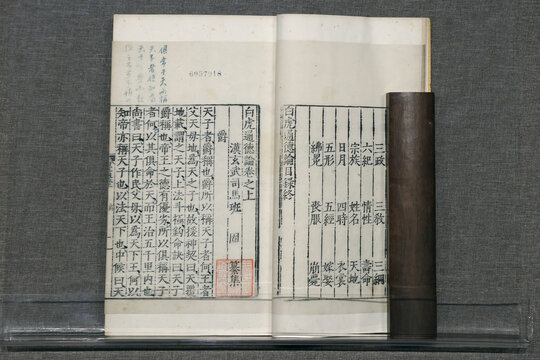 三政 三敎 三綱
六紀 情性 壽命
宗族 姓名 天地
日月 四時 衣裳
五形 五經 嫁娶
紼冕 喪服 崩薨
白虎通德論目録終
白虎通德論卷之上
漢玄武司馬班 固 纂集
爵
天子者爵稱也爵所以稱天子者何王者
父天母地爲天之子也故援神契曰天覆
地載謂之天子上法斗極鉤命訣曰天子
爵稱也帝王之德有優劣所以俱稱天子
者何以其俱命於天而王治五千里內也
尚書曰天子作民父母以爲天下王何以
知帝亦稱天子也以法天下也中候曰天